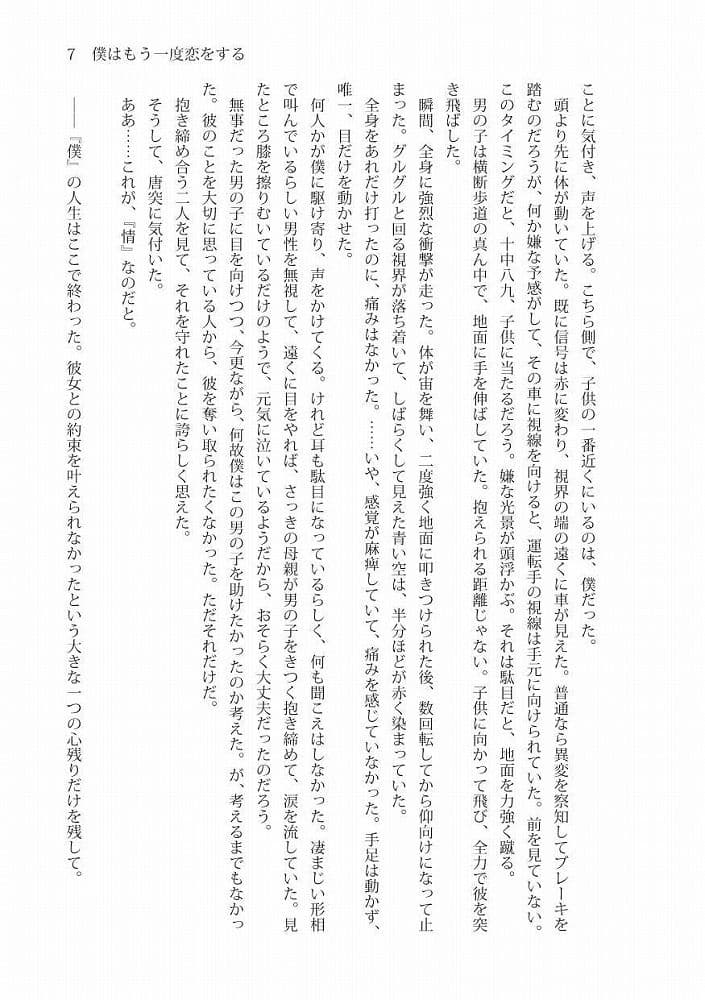 7　僕はもう一度恋をする
ことに気付き、声を上げる。こちら側で、子供の一番近くにいるのは、僕だった。
頭より先に体が動いていた。既に信号は赤に変わり、視界の端の遠くに車が見えた。普通なら異変を察知してブレーキを
踏むのだろうが、何か嫌な予感がして、その車に視線を向けると、運転手の視線は手元に向けられていた。前を見ていない。
このタイミングだと、十中八九、子供に当たるだろう。嫌な光景が頭浮かぶ。それは駄目だと、地面を力強く蹴る。
男の子は横断歩道の真ん中で、地面に手を伸ばしていた。抱えられる距離じゃない。子供に向かって飛び、全力で彼を突
き飛ばした。
瞬間、全身に強烈な衝撃が走った。体が宙を舞い、二度強く地面に叩きつけられた後、数回転してから仰向けになって止
まった。グルグルと回る視界が落ち着いて、しばらくして見えた青い空は、半分ほどが赤く染まっていた。
全身をあれだけ打ったのに、痛みはなかった。……いや、感覚が麻痺していて、痛みを感じていなかった。手足は動かず、
唯一、目だけを動かせた。
何人かが僕に駆け寄り、声をかけてくる。けれど耳も駄目になっているらしく、何も聞こえはしなかった。凄まじい形相
で叫んでいるらしい男性を無視して、遠くに目をやれば、さっきの母親が男の子をきつく抱き締めて、涙を流していた。見
たところ膝を擦りむいているだけのようで、元気に泣いているようだから、おそらく大丈夫だったのだろう。
無事だった男の子に目を向けつつ、今更ながら、何故僕はこの男の子を助けたかったのか考えた。が、考えるまでもなかっ
た。彼のことを大切に思っている人から、彼を奪い取られたくなかった。ただそれだけだ。
抱き締め合う二人を見て、それを守れたことに誇らしく思えた。
そうして、唐突に気付いた。
ああ……これが、『情』なのだと。
――『僕』の人生はここで終わった。彼女との約束を叶えられなかったという大きな一つの心残りだけを残して。